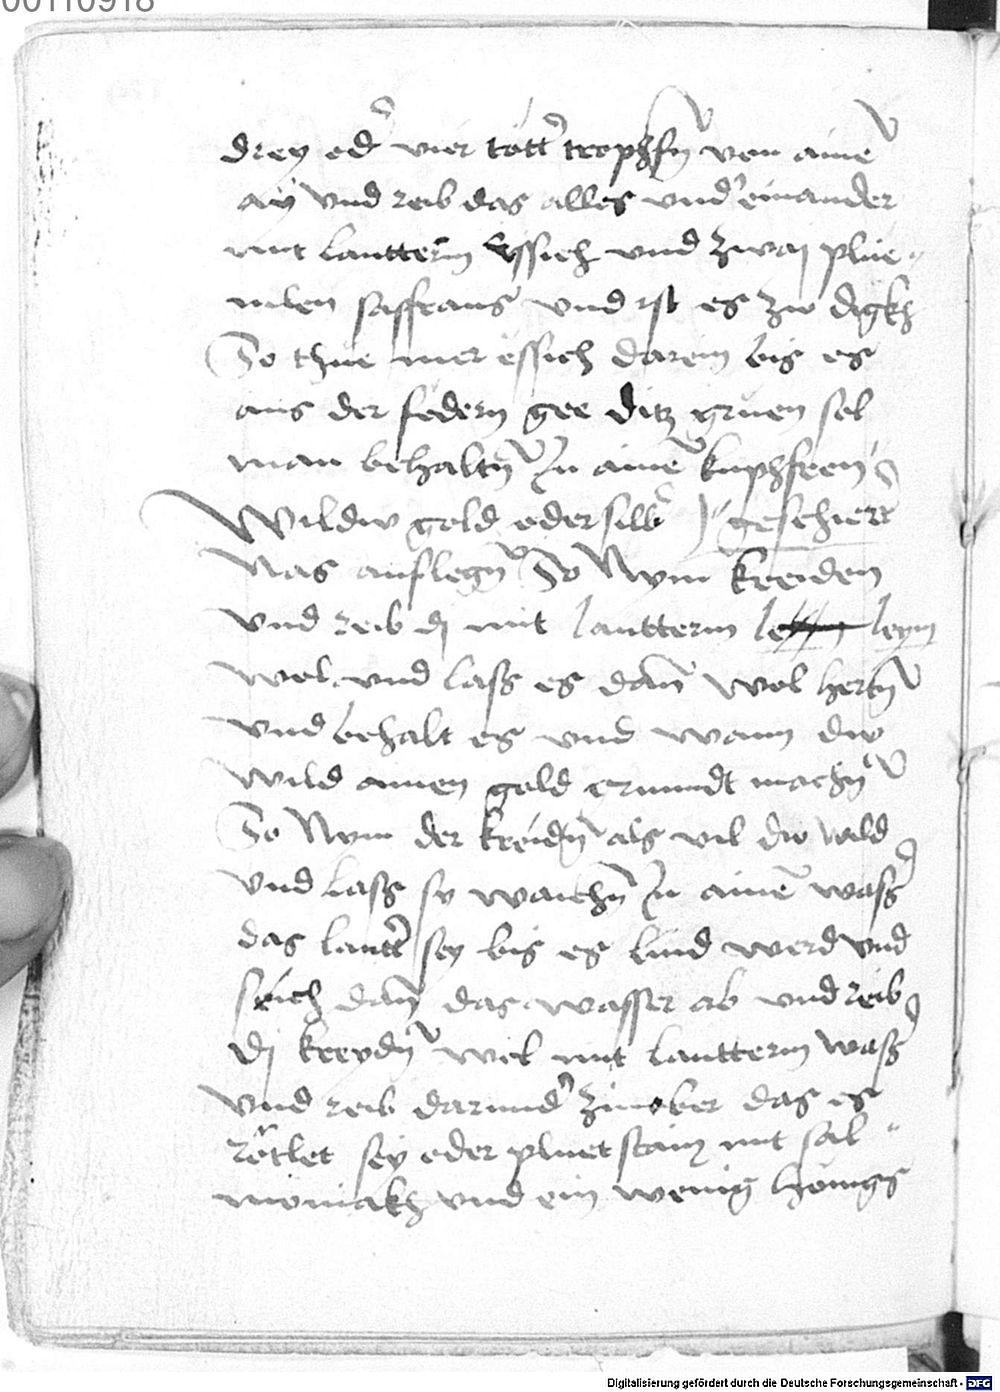 00110918
drey od' vier tött' trophfn von aine
aÿ vnd reib das alles vnd' einander
mit lautterm Essich vnd zwaj plüe=
mlen saffrans vnd ist es zw digkh
So thüe mer essich darein bis es
aus der federn gee ditz gruen sol
man behaltn In aine kuphfren
Wildw gold oder silb' geschierr
Nas auflegn So Nym kreiden
vnd reib dj mit lautterm leym
wol vnd lass es dan wol hertn
vnd behalt es vnd wann dw
wild ainen gold grundt machn
So Nym der kreidn als vil dw wild
vnd lass sy waichn In aine wass'
das lautt' sey bis es lind werd vnd
seich dan das wasser ab vnd reib
dj kreydn wol mit lautterm wass'
vnd reib darund' zinober das es
rötlet sey oder pluetstain mit sal=
moniakh vnd ein wenig honigs
Digitalisierung gefördert durch die Deutsche Forschungsgemeinschaft - DFG